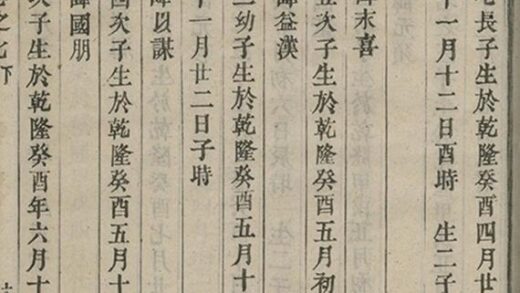 長子生於乾隆癸酉四月廿
十一月十二日酉時 生二子
諱永喜
五次子生於乾隆癸酉五月初
諱益漢
二幼子生於乾隆癸酉五月十
十一月廿二日子時
諱以謀
四次子生於乾隆癸酉五月十
諱國朋
次子生於乾隆癸酉年六月十
之北下